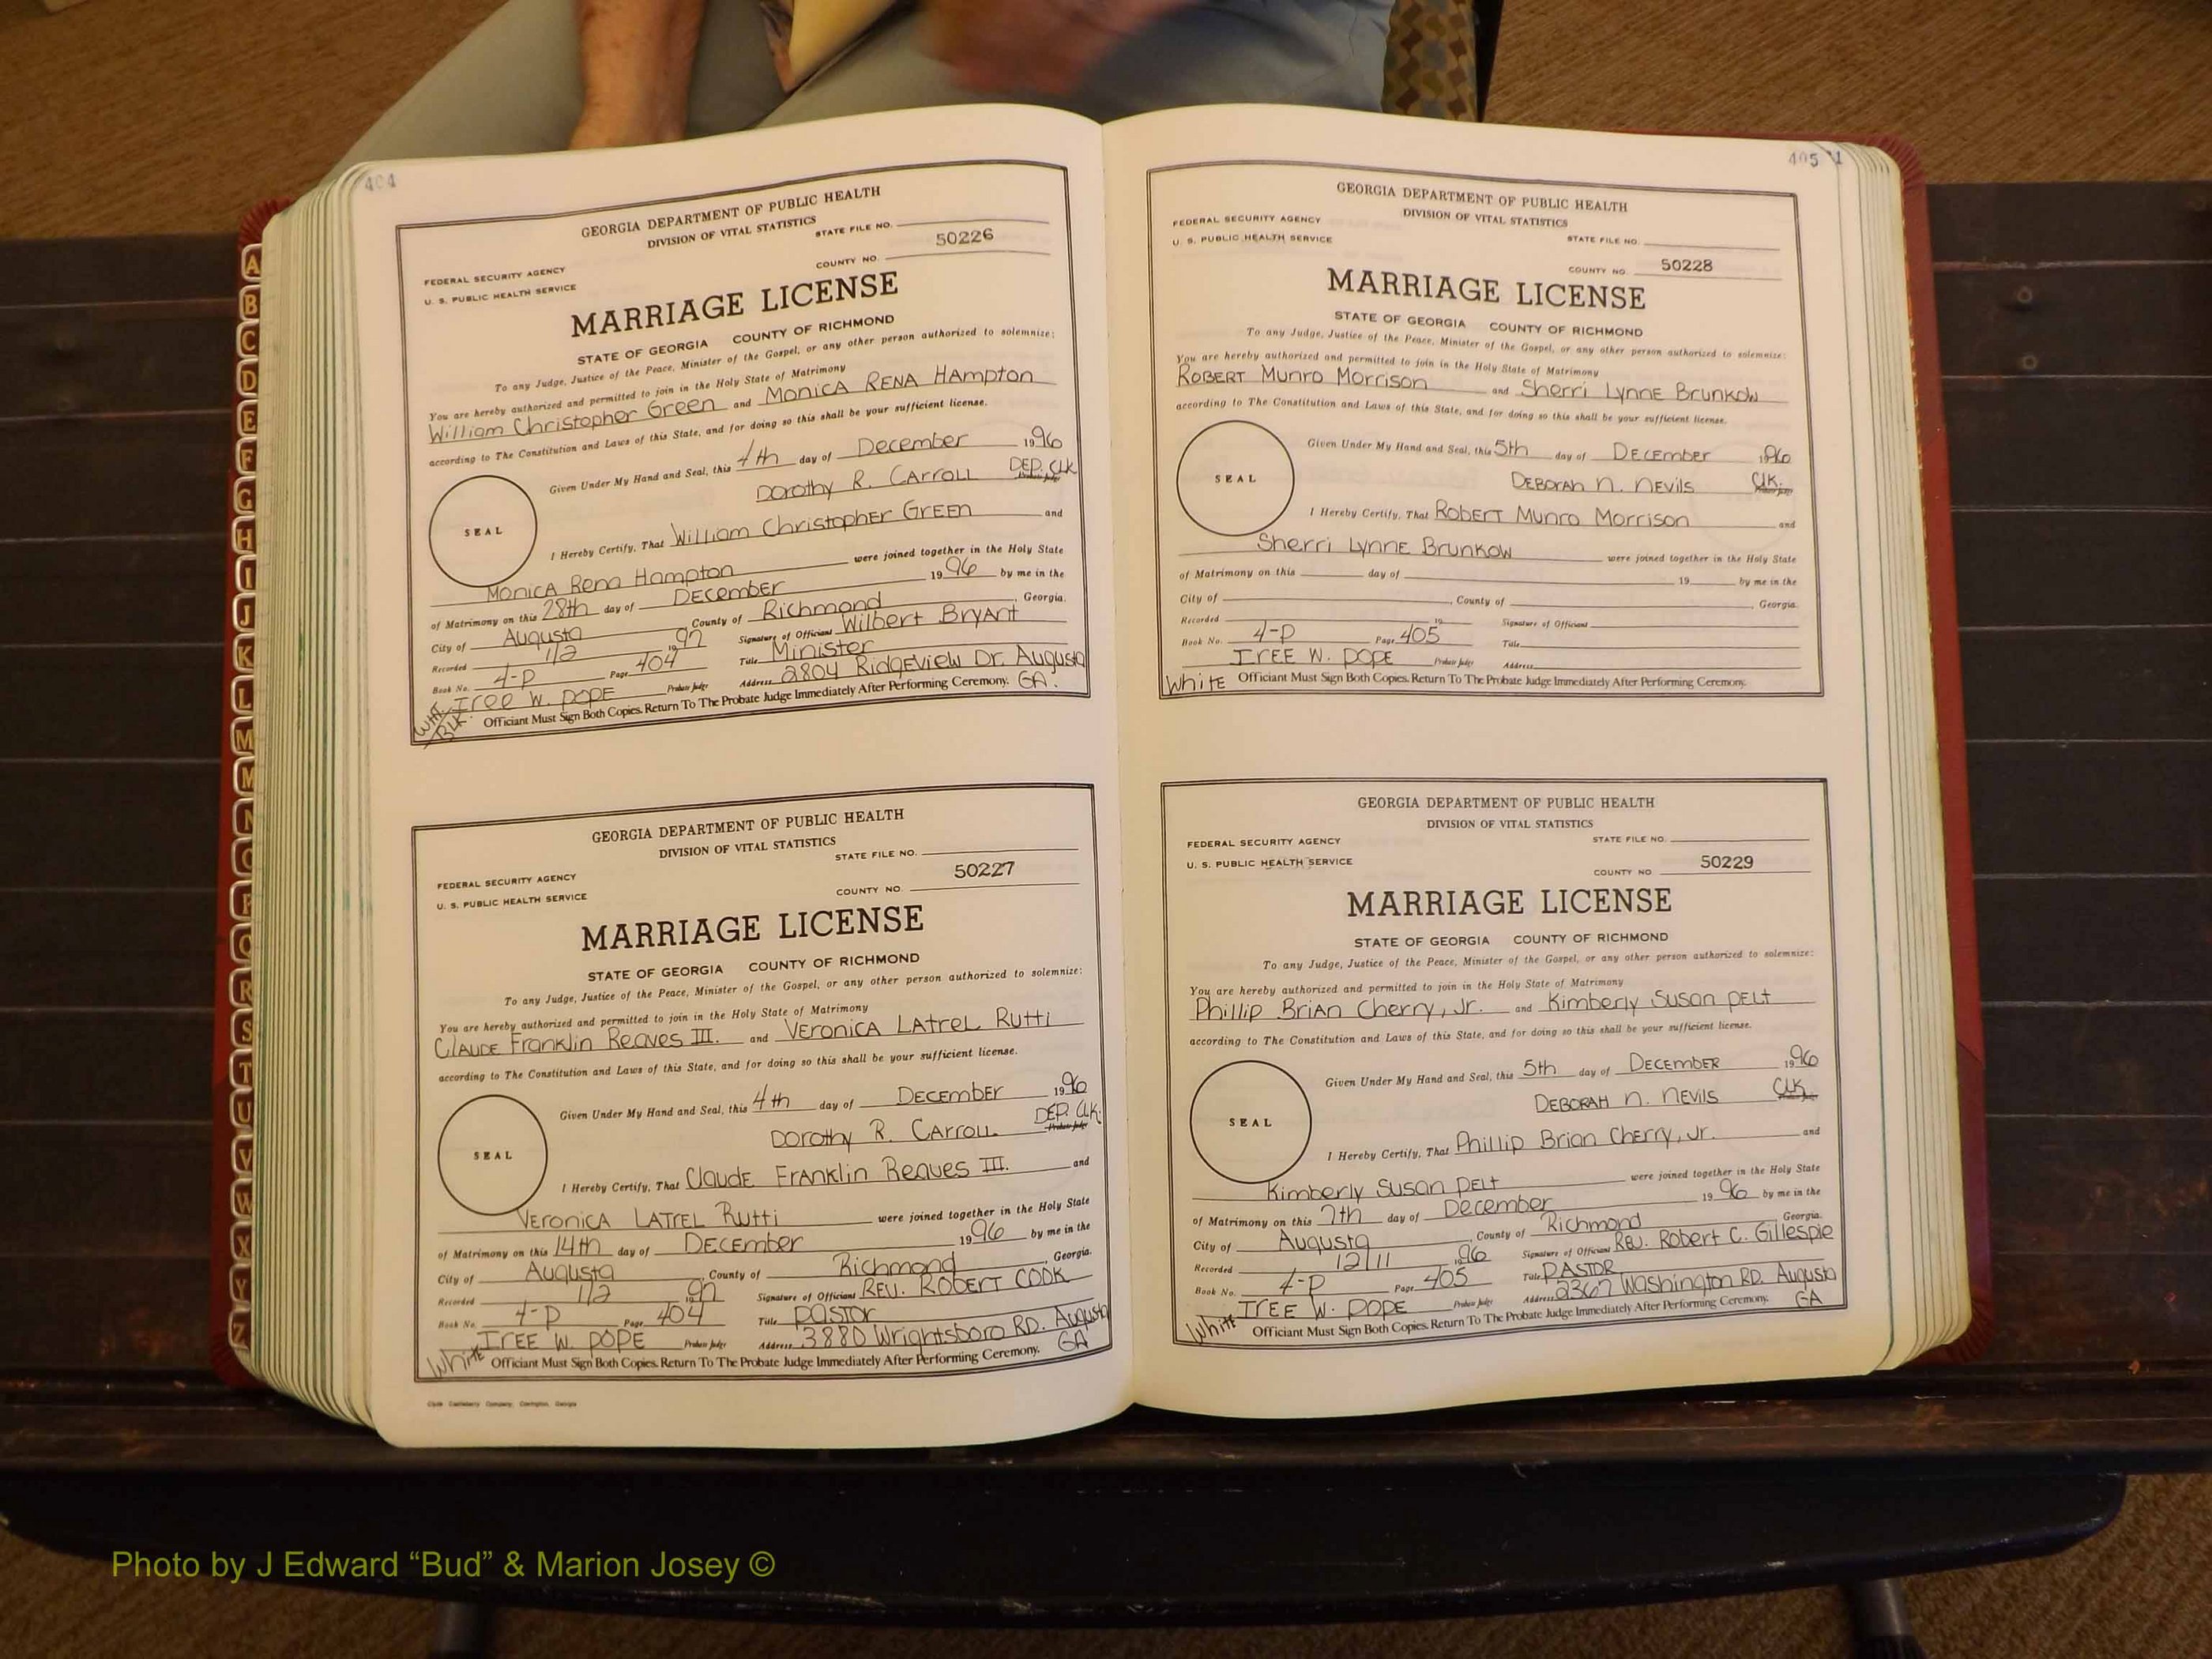 404
GEORGIA DEPARTMENT OF PUBLIC HEALTH
DIVISION OF VITAL STATISTICS
STATE FILE NO.
FEDERAL SECURITY AGENCY
U. S. PUBLIC HEALTH SERVICE
COUNTY NO. 50226
MARRIAGE LICENSE
STATE OF GEORGIA COUNTY OF RICHMOND
To any Judge, Justice of the Peace, Minister of the Gospel, or any other person authorized to solemnize:
You are hereby authorized and permitted to join in the Holy State of Matrimony
William Christopher Green and Monica Rena Hampton
according to The Constitution and Laws of this State, and for doing so this shall be your sufficient license.
SEAL
Given Under My Hand and Seal, this 4th day of December 1996
Dorothy R. Carroll DEP. Clk. Probate Judge
I Hereby Certify, That William Christopher Green and
Monica Rena Hampton were joined together in the Holy State
of Matrimony on this 28th day of December 1996 by me in the
City of Augusta, County of Richmond, Georgia.
Recorded 1/2 1997 Signature of Official Wilbert Bryant
Book No. 4-P Page 404 Title Minister
Iree W. Pope Probate Judge Address 2804 Ridgeview Dr. Augusta GA.
Wht. BLK. Officiant Must Sign Both Copies. Return To The Probate Judge Immediately After Performing Ceremony.
GEORGIA DEPARTMENT OF PUBLIC HEALTH
DIVISION OF VITAL STATISTICS
STATE FILE NO.
FEDERAL SECURITY AGENCY
U. S. PUBLIC HEALTH SERVICE
COUNTY NO. 50227
MARRIAGE LICENSE
STATE OF GEORGIA COUNTY OF RICHMOND
To any Judge, Justice of the Peace, Minister of the Gospel, or any other person authorized to solemnize:
You are hereby authorized and permitted to join in the Holy State of Matrimony
Claude Franklin Reaves III. and Veronica Latrel Rutti
according to The Constitution and Laws of this State, and for doing so this shall be your sufficient license.
SEAL
Given Under My Hand and Seal, this 4th day of December 1996
Dorothy R. Carroll DEP. Clk. Probate Judge
I Hereby Certify, That Claude Franklin Reaves III. and
Veronica Latrel Rutti were joined together in the Holy State
of Matrimony on this 14th day of December 1996 by me in the
City of Augusta, County of Richmond, Georgia.
Recorded 1/2 1997 Signature of Official Rev. Robert Cook
Book No. 4-P Page 404 Title Pastor
Iree W. Pope Probate Judge Address 3880 Wrightsboro RD. Augusta GA
White Officiant Must Sign Both Copies. Return To The Probate Judge Immediately After Performing Ceremony.
405
GEORGIA DEPARTMENT OF PUBLIC HEALTH
DIVISION OF VITAL STATISTICS
FEDERAL SECURITY AGENCY
U. S. PUBLIC HEALTH SERVICE
STATE FILE NO.
COUNTY NO. 50228
MARRIAGE LICENSE
STATE OF GEORGIA COUNTY OF RICHMOND
To any Judge, Justice of the Peace, Minister of the Gospel, or any other person authorized to solemnize:
You are hereby authorized and permitted to join in the Holy State of Matrimony
Robert Munro Morrison and Sherri Lynne Brunkow
according to The Constitution and Laws of this State, and for doing so this shall be your sufficient license.
SEAL
Given Under My Hand and Seal, this 5th day of December 1996
Deborah N. Nevils Clk. Probate Judge
I Hereby Certify, That Robert Munro Morrison and
Sherri Lynne Brunkow were joined together in the Holy State
of Matrimony on this day of 19 by me in the
City of , County of , Georgia.
Recorded 19 Signature of Official
Book No. 4-P Page 405 Title
Iree W. Pope Probate Judge Address
White Officiant Must Sign Both Copies. Return To The Probate Judge Immediately After Performing Ceremony.
GEORGIA DEPARTMENT OF PUBLIC HEALTH
DIVISION OF VITAL STATISTICS
FEDERAL SECURITY AGENCY
U. S. PUBLIC HEALTH SERVICE
STATE FILE NO.
COUNTY NO 50229
MARRIAGE LICENSE
STATE OF GEORGIA COUNTY OF RICHMOND
To any Judge, Justice of the Peace, Minister of the Gospel, or any other person authorized to solemnize:
You are hereby authorized and permitted to join in the Holy State of Matrimony
Phillip Brian Cherry, Jr. and Kimberly Susan Pelt
according to The Constitution and Laws of this State, and for doing so this shall be your sufficient license.
SEAL
Given Under My Hand and Seal, this 5th day of December 1996
Deborah N. Nevils Clk.
I Hereby Certify, That Phillip Brian Cherry, Jr. and
Kimberly Susan Pelt were joined together in the Holy State
of Matrimony on this 7th day of December 1996 by me in the
City of Augusta, County of Richmond Georgia.
Recorded 12/11 1996 Signature of Official Rev. Robert C. Gillespie
Book No. 4-P Page 405 Title Pastor
Iree W. Pope Probate Judge Address 2367 Washington RD. Augusta GA
White Officiant Must Sign Both Copies. Return To The Probate Judge Immediately After Performing Ceremony.
A
B
C
D
E
F
G
H
I
J
K
L
M
M
N
O
P
Q
R
S
T
U
V
W
X
Y
Z
Photo by J Edward “Bud” & Marion Josey ©